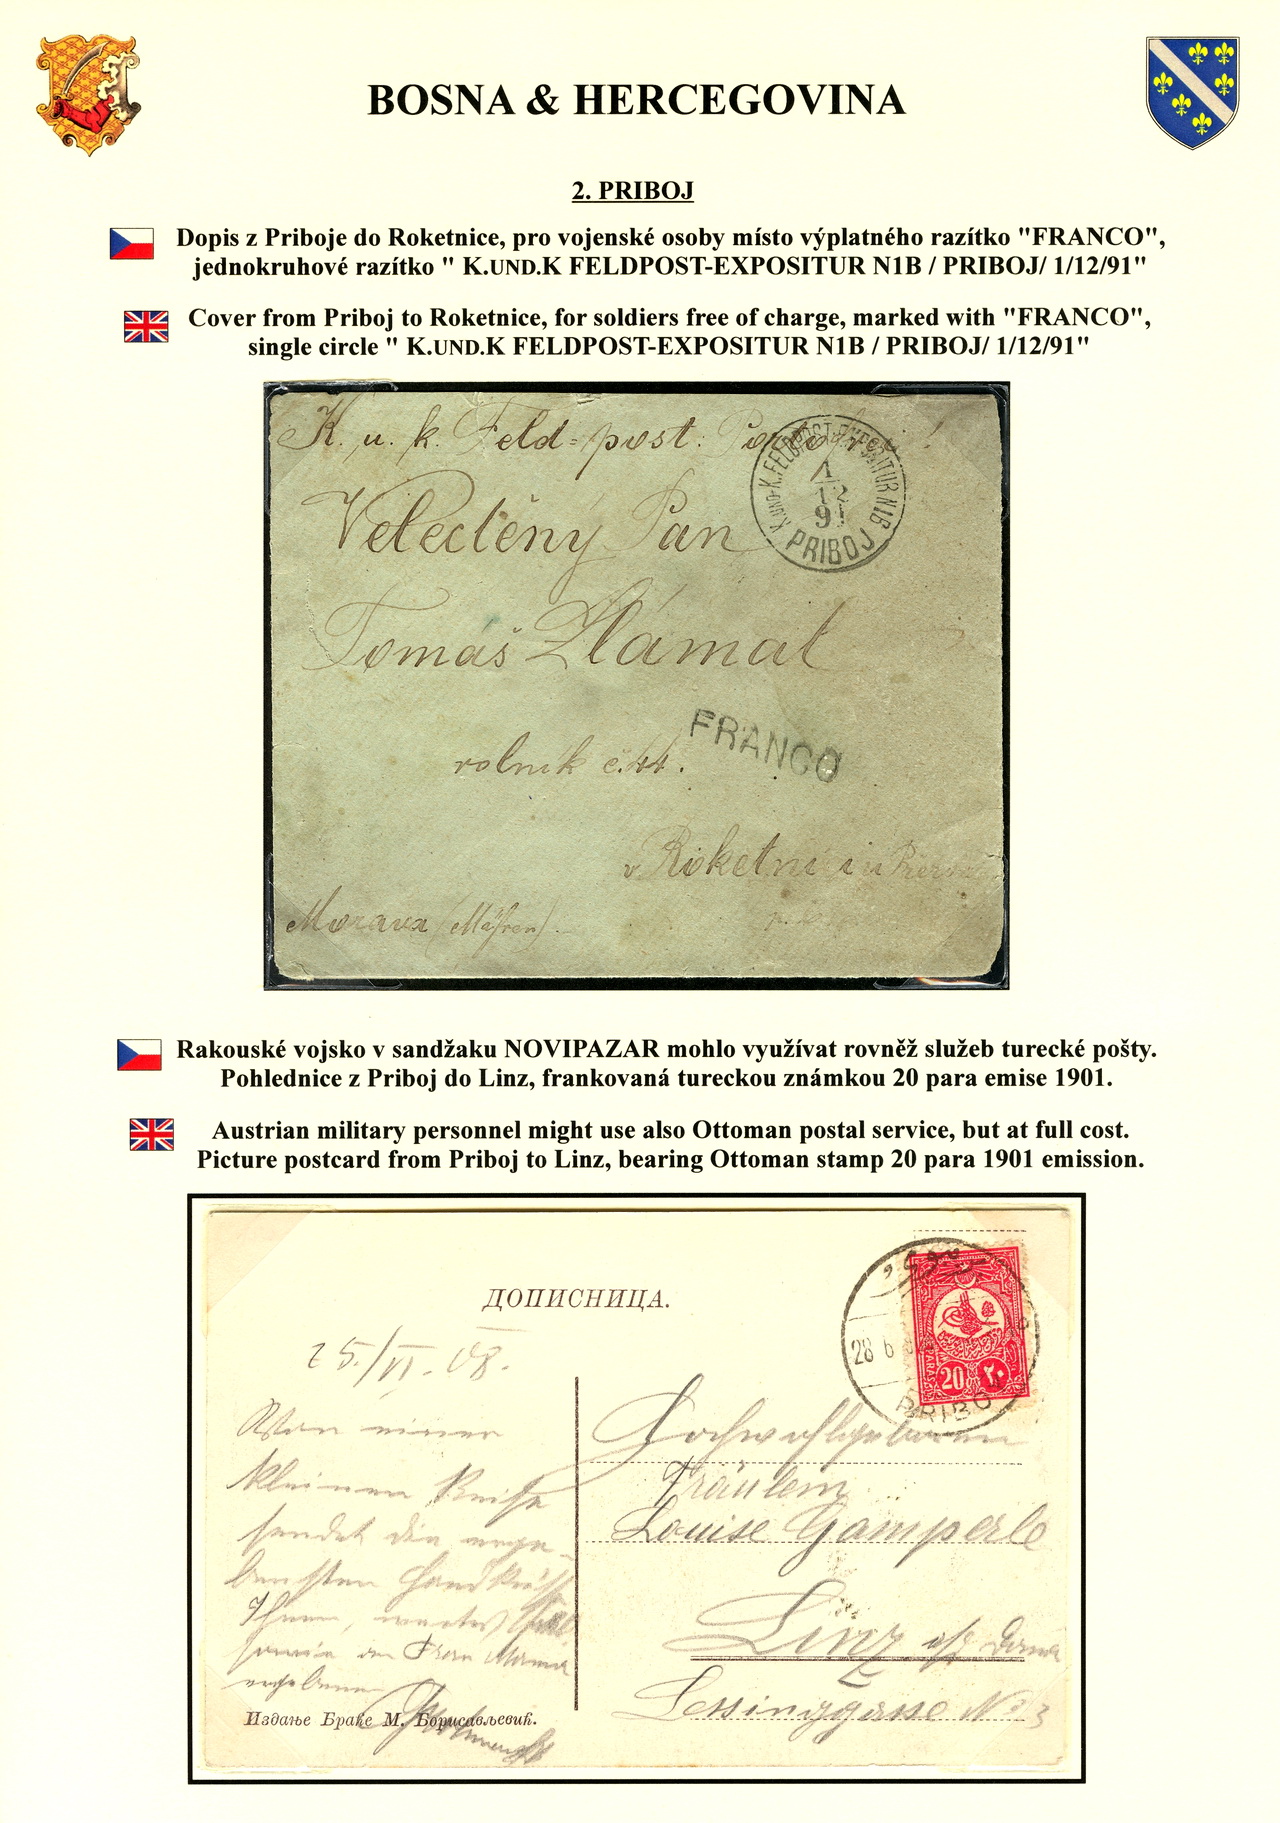 BOSNA & HERCEGOVINA
2. PRIBOJ
Dopis z Priboje do Roketnice, pro vojenské osoby místo výplatného razítko "FRANCO",
jednokruhové razítko " K.UND.K FELDPOST-EXPOSITUR N1B / PRIBOJ/ 1/12/91"
Cover from Priboj to Roketnice, for soldiers free of charge, marked with "FRANCO",
single circle " K.UND.K FELDPOST-EXPOSITUR N1B / PRIBOJ/ 1/12/91"
K. u. k. Feld=post.
K.UND.K.FELDPOST-EXPOSITUR N1B
1
12
91
PRIBOJ
Velectěný Pan
Tomáš
FRANCO
rolník č. 44.
v
Morava (Mähren).
Rakouské vojsko v sandžaku NOVIPAZAR mohlo využívat rovněž služeb turecké pošty.
Pohlednice z Priboj do Linz, frankovaná tureckou známkou 20 para emise 1901.
Austrian military personnel might use also Ottoman postal service, but at full cost.
Picture postcard from Priboj to Linz, bearing Ottoman stamp 20 para 1901 emission.
ДОПИСНИЦА.
28 6
20 ٢٠
PARAS
PRIBOJ
25./VI. 08.
Von einer
kleinen Reise
sendet die erge-
bensten Handküsse
Ihnen, wertes
sowie der Frau Mama
ergebener
Издање Браће М. Борисављевић.
Hochwohlgeboren
Fräulein
Louise Gamperle
Linz a/d Donau
Lessinggasse No 3